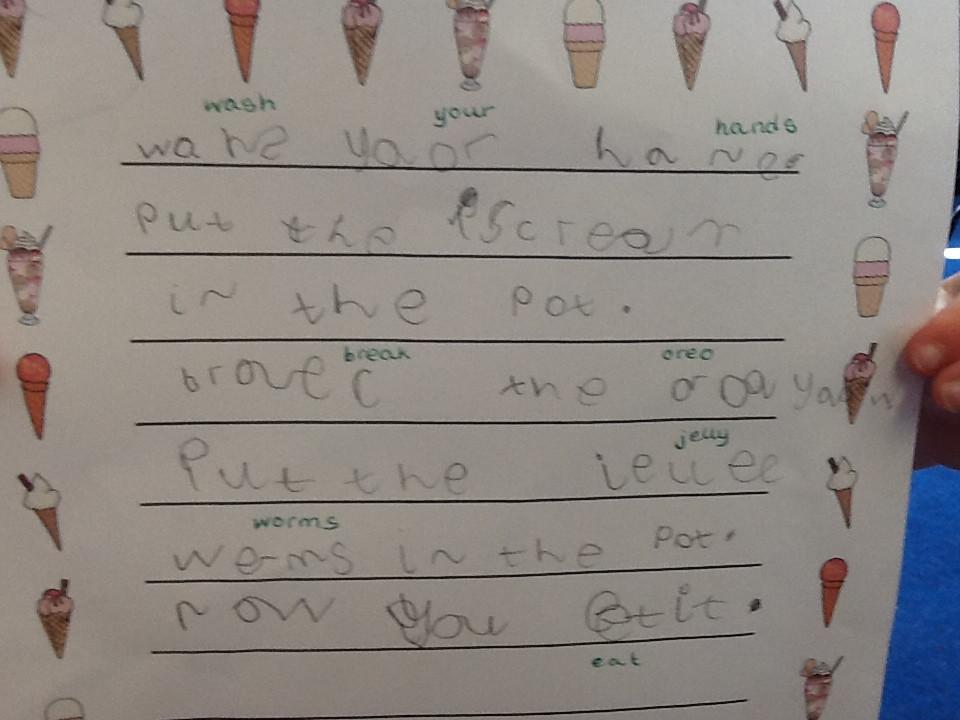 wash your hands
wahe yaor hanes
Put the Iscream
in the pot.
break oreo
brovec the oroa
jelly
Put the ieuee
worms
wems in the pot.
now you etit.
eat